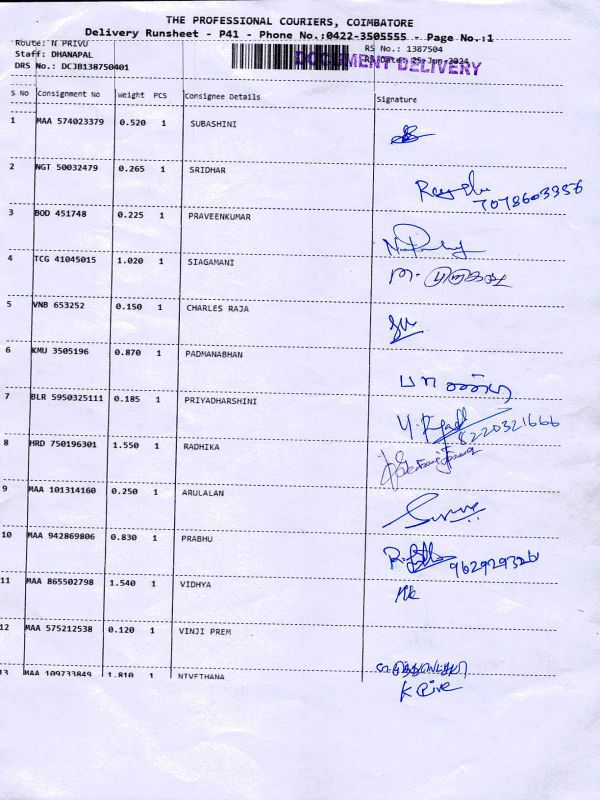 THE PROFESSIONAL COURIERS, COIMBATORE
Delivery Runsheet - P41 - Phone No.:0422-3505555 - Page No.:1
Route: N PRIVU RS No.: 1387504
Staff: DHANAPAL RS Date: 25-Jun-2024
DOCUMENT DELIVERY
DRS No.: DCJB138750401
S No Consignment No Weight PCS Consignee Details Signature
1 MAA 574023379 0.520 1 SUBASHINI
2 NGT 50032479 0.265 1 SRIDHAR
7078603956
3 BOD 451748 0.225 1 PRAVEENKUMAR
4 TCG 41045015 1.020 1 SIAGAMANI
5 VNB 653252 0.150 1 CHARLES RAJA
6 KMU 3505196 0.870 1 PADMANABHAN
7 BLR 5950325111 0.185 1 PRIYADHARSHINI
8220321666
8 HRD 750196301 1.550 1 RADHIKA
9 MAA 101314160 0.250 1 ARULALAN
10 MAA 942869806 0.830 1 PRABHU
11 MAA 865502798 1.540 1 VIDHYA
12 MAA 575212538 0.120 1 VINJI PREM
13 MAA 109733849 1.810 1 NIVETHANA